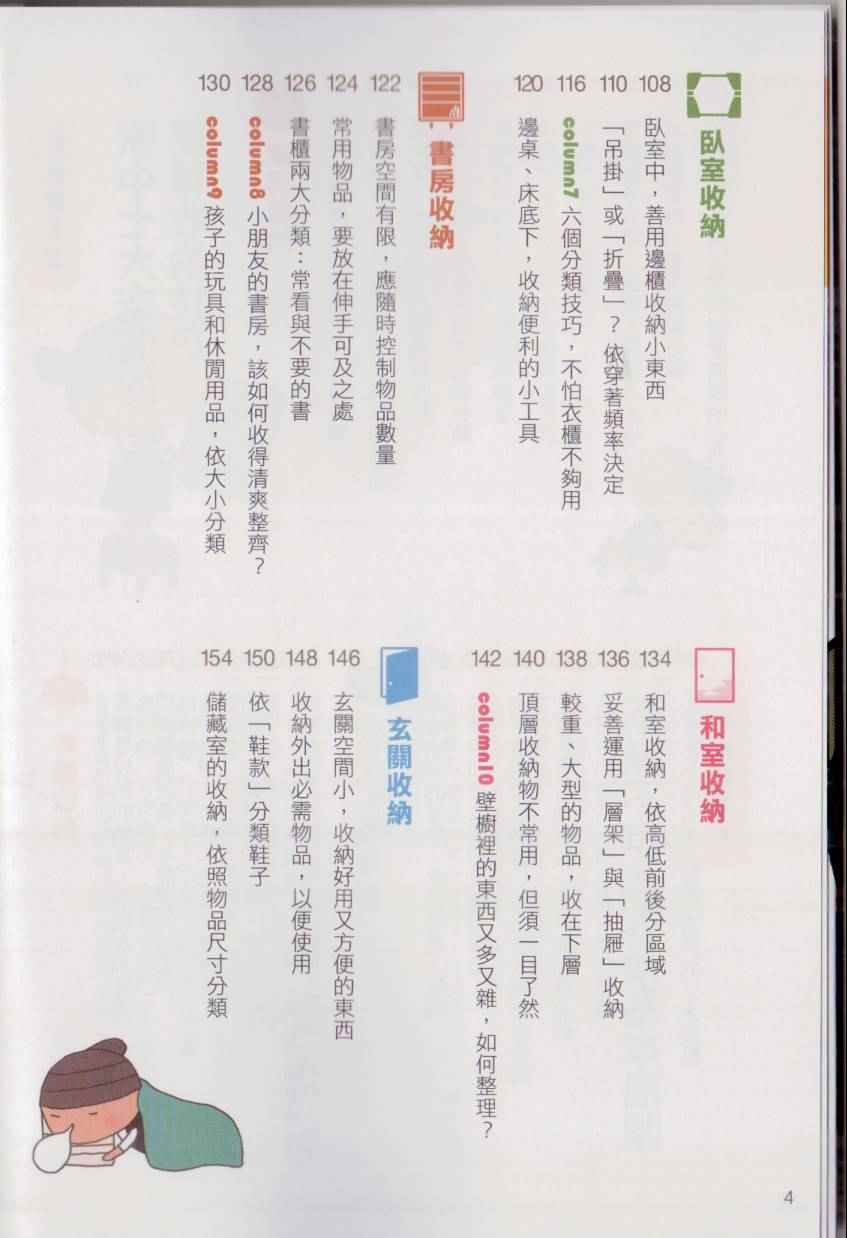 臥室收納
108 臥室中，善用邊櫃收納小東西
110 「吊掛」或「折疊」？依穿著頻率決定
116 column7 六個分類技巧，不怕衣櫃不夠用
120 邊桌、床底下，收納便利的小工具
書房收納
122 書房空間有限，應隨時控制物品數量
124 常用物品，要放在伸手可及之處
126 書櫃兩大分類：常看與不要的書
128 column8 小朋友的書房，該如何收得清爽整齊？
130 column9 孩子的玩具和休閒用品，依大小分類
和室收納
134 和室收納，依高低前後分區域
136 妥善運用「層架」與「抽屜」收納
138 較重、大型的物品，收在下層
140 頂層收納物不常用，但須一目了然
142 column10 壁櫥裡的東西又多又雜，如何整理？
玄關收納
146 玄關空間小，收納好用又方便的東西
148 收納外出必需物品，以便使用
150 依「鞋款」分類鞋子
154 儲藏室的收納，依照物品尺寸分類
4